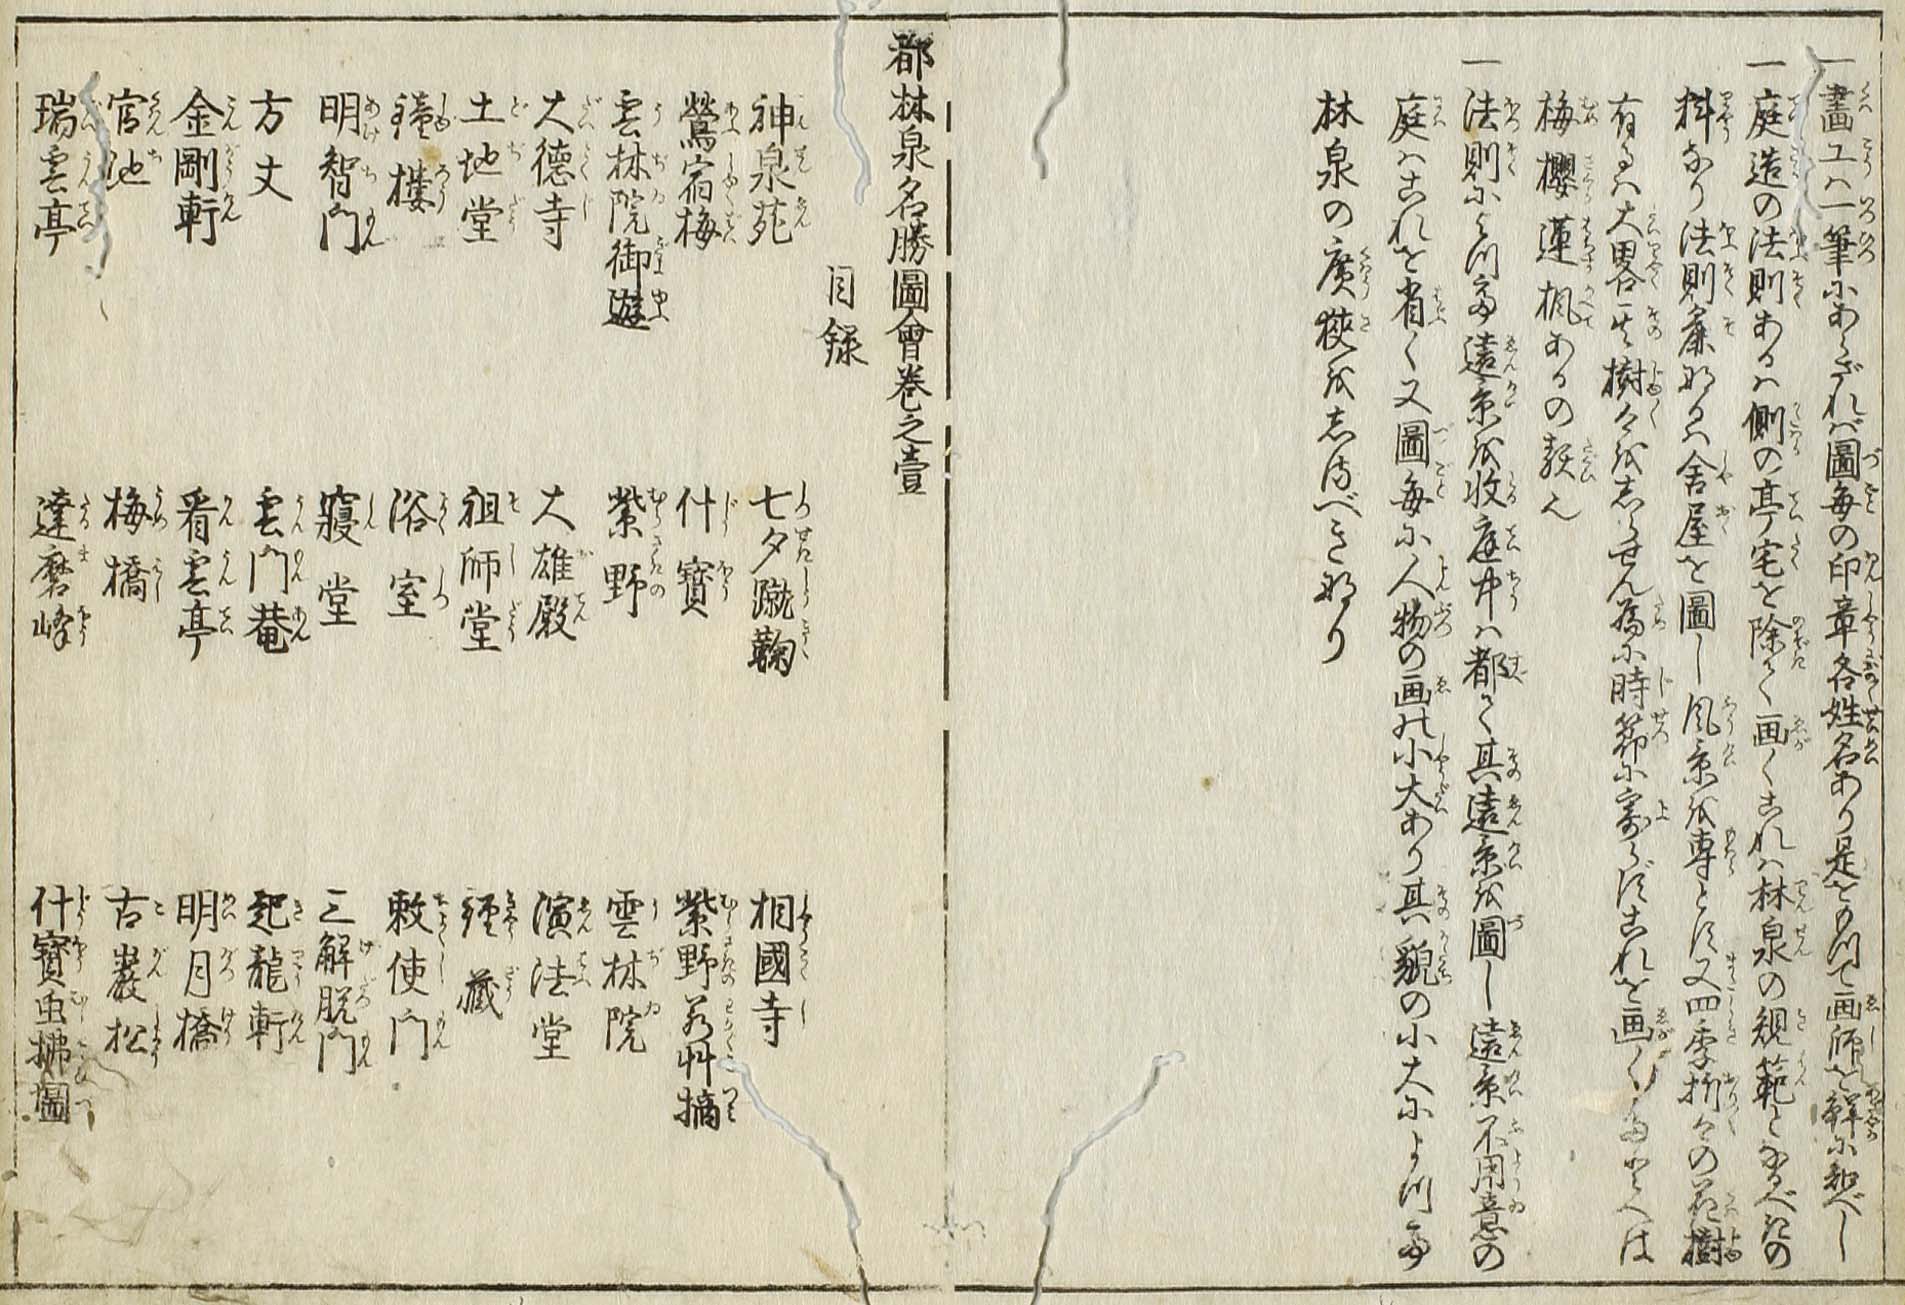 一畫工ハ一筆にあらざれば圖毎の印章各姓名あり是をもつて画師を鮮に知べし
一庭造の法則あるハ側の亭宅を除て画くこれハ林泉の規範となるべきの
料なり法則麁なるハ舎屋を圖し風景を専とす又四季折々の花樹
有るハ大畧其樹々をしらせん為に時節に寄らずこれを画くたとへは
梅櫻蓮楓あるの類也
一法則によつて遠景を收庭中ハ都て其遠景を圖し遠景不用意の
庭ハこれを省く又圖毎に人物の画の小大あり其貌の小大によつて
林泉の廣狹をしるべきなり
都林泉名勝圖會巻之壹
目録
神泉苑 七夕蹴鞠 相國寺
鶯宿梅 什寶 紫野若艸摘
雲林院御遊 紫野 雲林院
大德寺 大雄殿 演法堂
土地堂 祖師堂 經藏
鐘樓 浴室 敕使門
明智門 寢堂 三解脱門
方丈 雲門菴 起龍軒
金剛軒 看雲亭 明月橋
官池 梅橋 古巖松
瑞雲亭 達磨峰 什寶虫拂圖